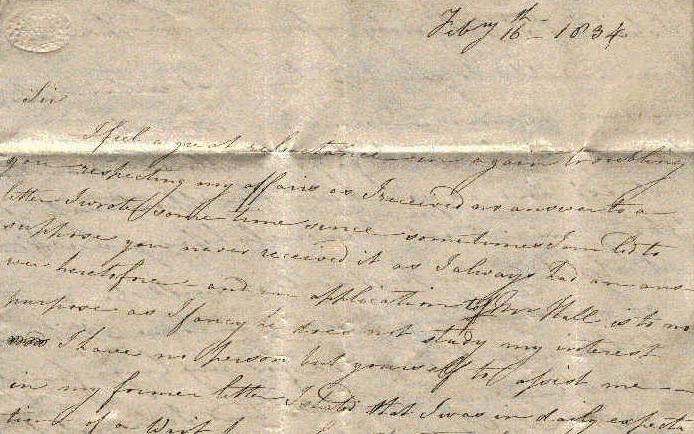 Feby 16th - 1834
Sir
I feel a great reluctance in again troubling
you respecting my affairs as I received no answer to a
letter I wrote some time since sometimes I am led to
suppose you never received it as I always had an ans
wer heretofore - and an application to Mr Hull is to no
purpose as I fancy he does not study my interest
I have no person but yourself to assist me -
in my former letter I stated that I was in daily expecta
tion of a Writ